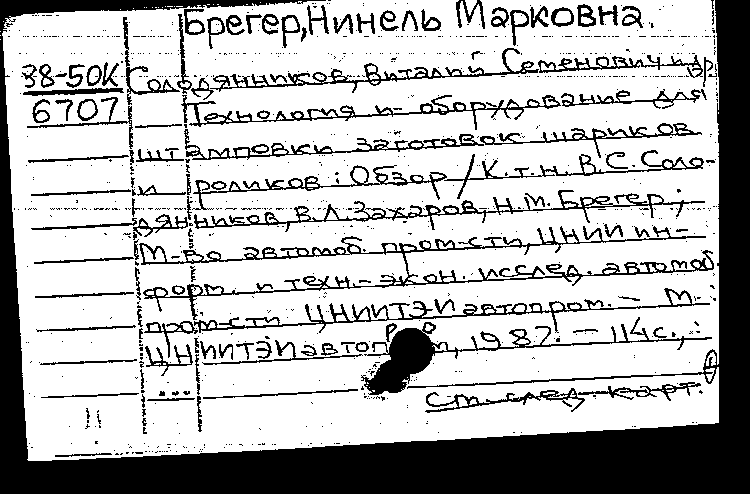 Брегер, Нинель Марковна.
38-50К Солодянников, Виталий Семенович и др.
6707 Технология и оборудование для
штамповки заготовок шариков
и роликов : Обзор / К.т.н. В.С. Соло-
дянников, В.Л. Захаров, Н.М. Брегер ;
М-во автомоб. пром-сти, ЦНИИ ин-
форм. и техн.-экон. исслед. автомоб.
пром-сти ЦНИИТЭИавтопром. - М. :
ЦНИИТЭИавтопром, 1987. - 114с., :
...
См. след. карт.